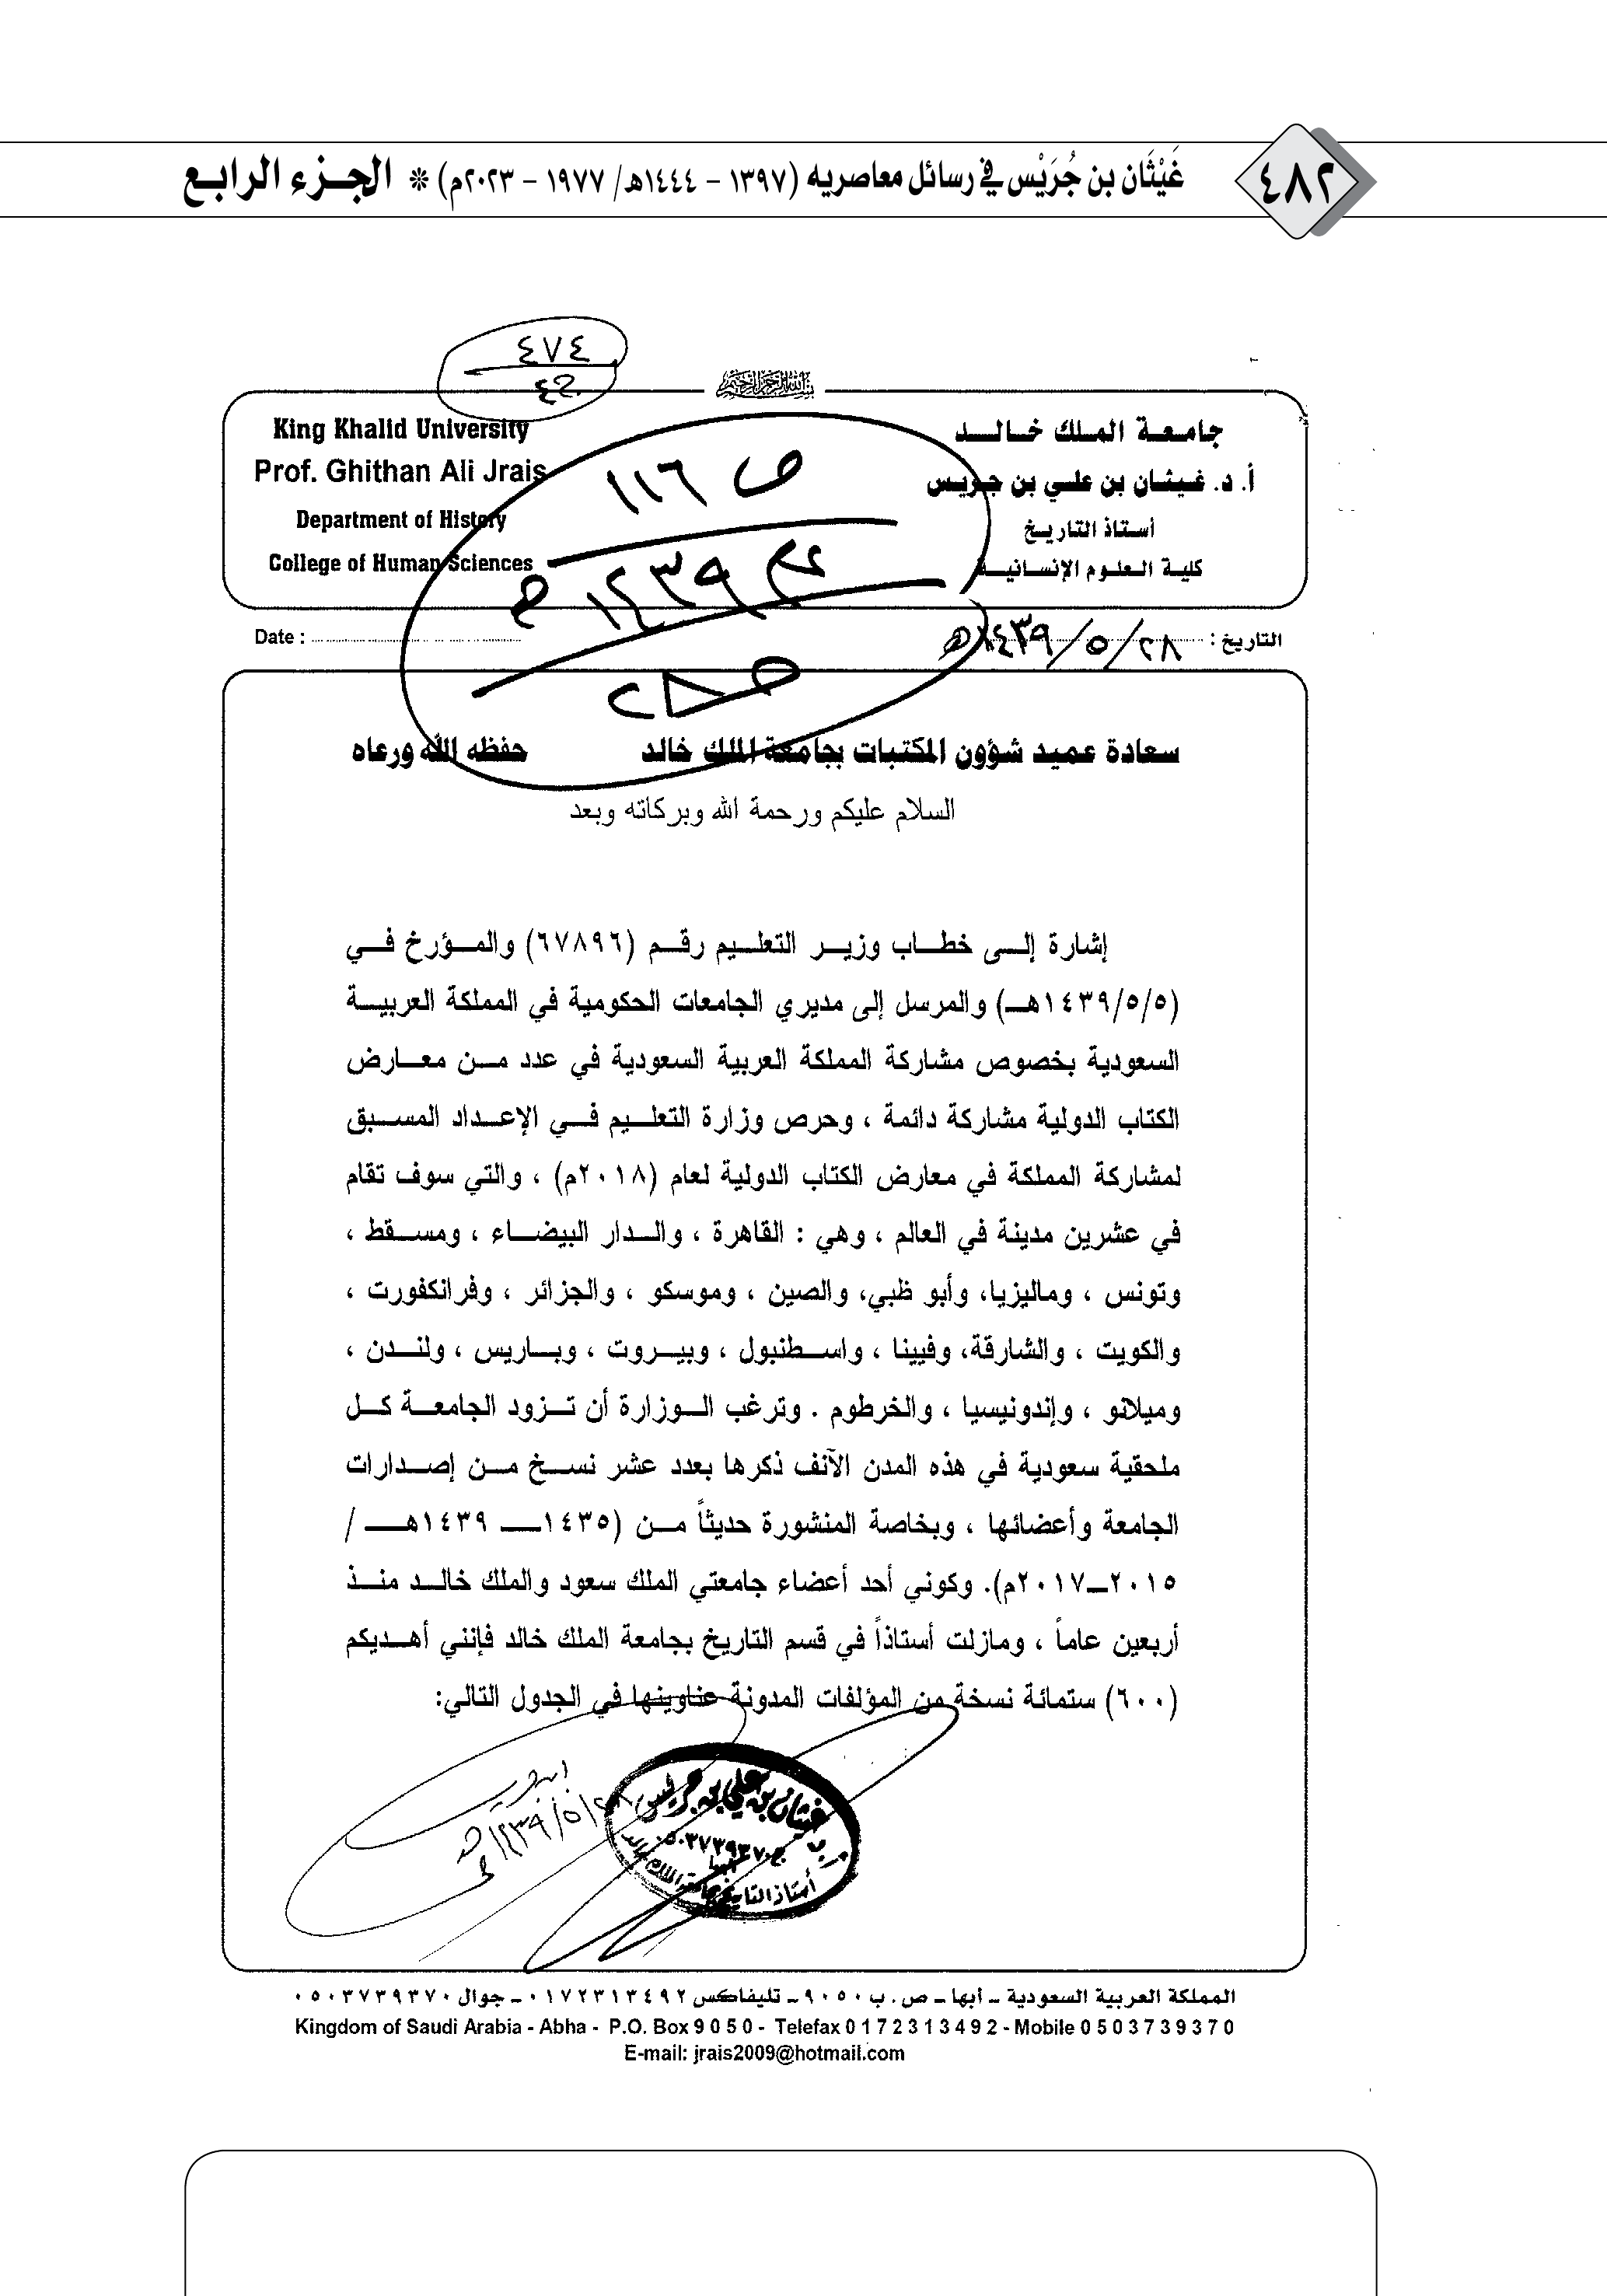 ٤٨٢
غَيْثَان بن جُرَيْس في رسائل معاصريه (١٣٩٧ – ١٤٤٤هـ/ ١٩٧٧ – ٢٠٢٣م) * الجزء الرابع
٤٧٤
بسم الله الرحمن الرحيم
جامعة الملك خالد
أ. د. غيثان بن علي بن جريس
أستاذ التاريخ
كلية العلوم الإنسانية
King Khalid University
Prof. Ghithan Ali Jrais
Department of History
College of Human Sciences
ص ١١٦
١٤٣٩
التاريخ : ٢٨/ ٥/ ١٤٣٩هـ
Date :
سعادة عميد شؤون المكتبات بجامعة الملك خالد حفظه الله ورعاه
السلام عليكم ورحمة الله وبركاته وبعد
إشارة إلى خطاب وزير التعليم رقم (٦٧٨٩٦) والمؤرخ في
(١٤٣٩/٥/٥هـ) والمرسل إلى مديري الجامعات الحكومية في المملكة العربية
السعودية بخصوص مشاركة المملكة العربية السعودية في عدد من معارض
الكتاب الدولية مشاركة دائمة ، وحرص وزارة التعليم في الإعداد المسبق
لمشاركة المملكة في معارض الكتاب الدولية لعام (٢٠١٨م) ، والتي سوف تقام
في عشرين مدينة في العالم ، وهي : القاهرة ، والدار البيضاء ، ومسقط ،
وتونس ، وماليزيا، وأبو ظبي، والصين ، وموسكو ، والجزائر ، وفرانكفورت ،
والكويت ، والشارقة، وفيينا ، واسطنبول ، وبيروت ، وباريس ، ولندن ،
وميلانو ، وإندونيسيا ، والخرطوم . وترغب الوزارة أن تزود الجامعة كل
ملحقية سعودية في هذه المدن الآنف ذكرها بعدد عشر نسخ من إصدارات
الجامعة وأعضائها ، وبخاصة المنشورة حديثاً من (١٤٣٥ــ ١٤٣٩هــ /
٢٠١٥ــ٢٠١٧م). وكوني أحد أعضاء جامعتي الملك سعود والملك خالد منذ
أربعين عاماً ، ومازلت أستاذاً في قسم التاريخ بجامعة الملك خالد فإنني أهديكم
(٦٠٠) ستمائة نسخة من المؤلفات المدونة عناوينها في الجدول التالي:
غيثان بن علي بن جريس
ج.٠٥٠٣٧٣٩٣٧٠
أبها
أستاذ التاريخ بجامعة الملك خالد
المملكة العربية السعودية ــ أبها ــ ص . ب ٩٠٥٠ ــ تليفاكس ٠١٧٢٣١٣٤٩٢ ــ جوال ٠٥٠٣٧٣٩٣٧٠
Kingdom of Saudi Arabia - Abha - P.O. Box 9 0 5 0 - Telefax 0 1 7 2 3 1 3 4 9 2 - Mobile 0 5 0 3 7 3 9 3 7 0
E-mail: jrais2009@hotmail.com